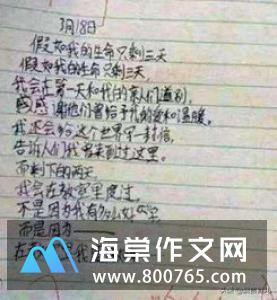 3月18日
假如我的生命只剩三天
假如我的生命只剩三天,
我会在第一天和我的亲人们道别,
感谢他们曾给予我的爱和温暖。
我还会给这个世界写一封信,
告诉人们我曾来到过这里。
而剩下的两天,
我会在教室里度过。
不是因为我有多么好学
而是因为——
在
海棠作文网
www.800765.com